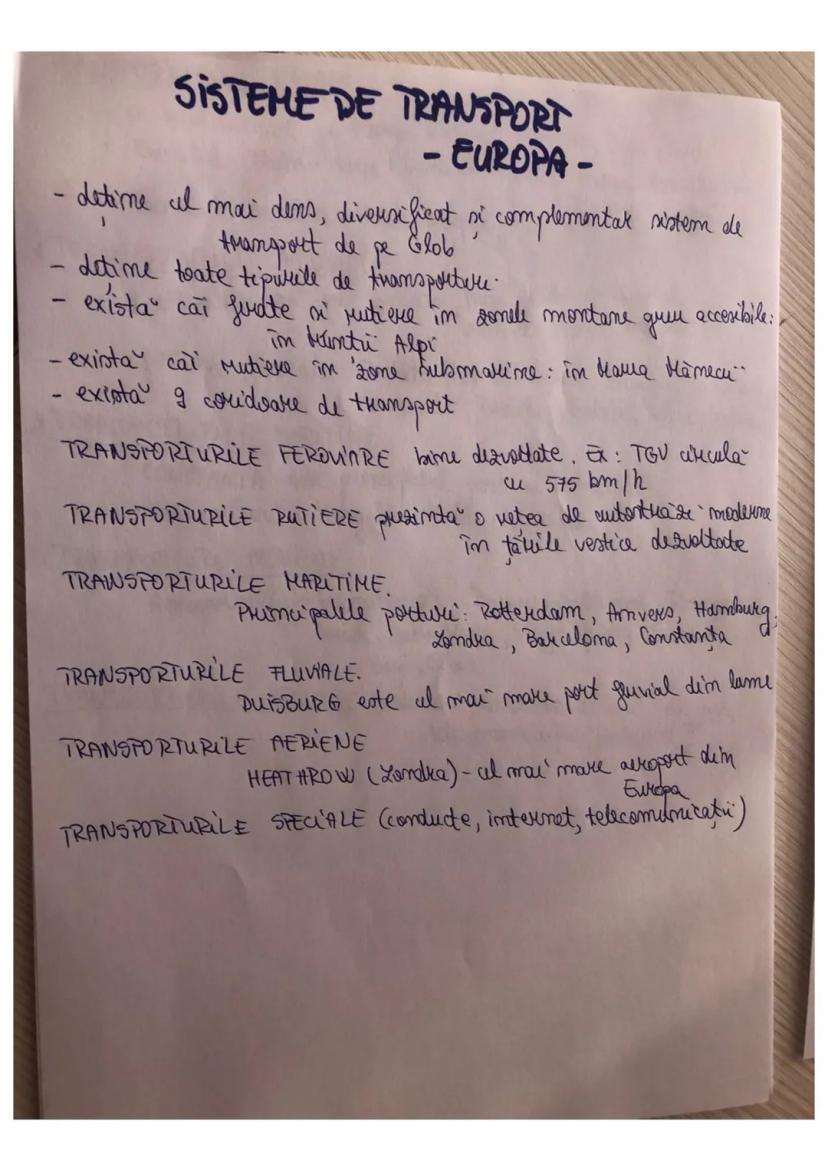 SISTEME DE TRANSPORT
- EUROPA -
- deține cel mai dens, diversificat și complementar sistem de
transport de pe Glob
- deține toate tipurile de transporturi.
- există căi ferate și rutiere în zonele montane greu accesibile:
în Munții Alpi
- există căi rutiere în zone submarine: în Marea Mânecii
- există 9 coridoare de transport
TRANSPORTURILE FEROVIARE bine dezvoltate. Ex: TGV circulă
cu 575 km/h
TRANSPORTURILE RUTIERE prezintă o rețea de autostrăzi moderne
în țările vestice dezvoltate
TRANSPORTURILE MARITIME.
Principalele porturi: Rotterdam, Anvers, Hamburg,
Londra, Barcelona, Constanța
TRANSPORTURILE FLUVIALE.
DUISBURG este cel mai mare port fluvial din lume
TRANSPORTURILE AERIENE
HEATHROW (Londra) - cel mai mare aeroport din
Europa
TRANSPORTURILE SPECIALE (conducte, internet, telecomunicații)